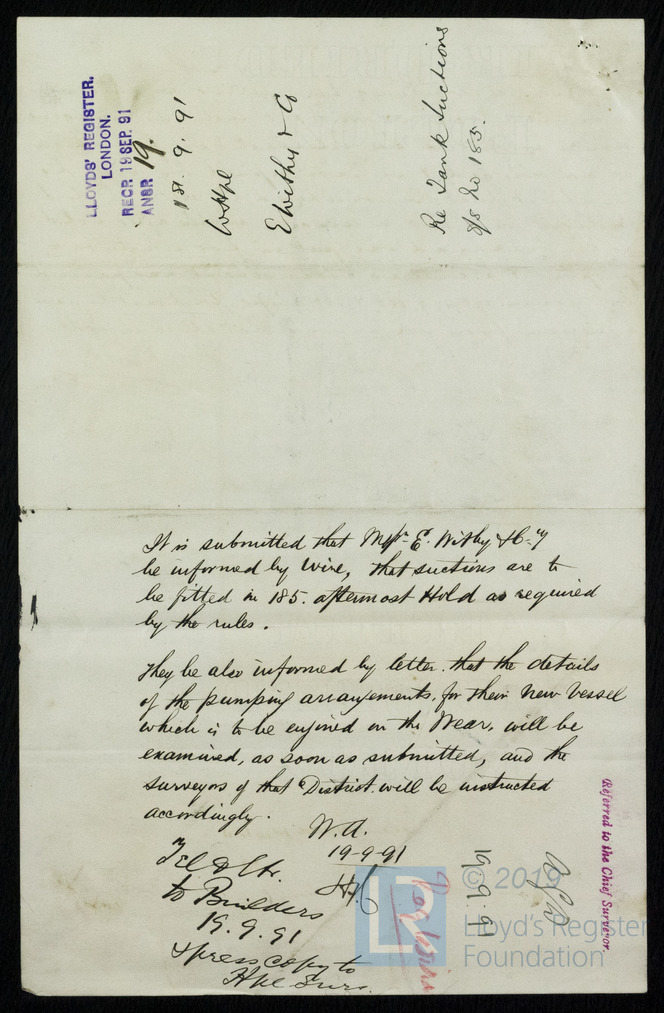 LLOYDS' REGISTER.
LONDON.
RECR 19 SEP. 91
ANSR 19.
181. 9. 91
W Hpl
E Withy & Co
Re Tank Suctions
S/S No 185.
It is submitted that Messrs E. Withy & Co-y
be informed by wire, that suctions are to
be fitted in 185. aftermost Hold as required
by the rules.
They be also informed by letter. that the details
of the pumping arrangements, for their new vessel
which is to be engined on the Wear, will be
examined, as soon as submitted, and the
surveyors of that District will be instructed
accordingly.
W.A.
19-9-91
Tel & Ltr.
to Builders
19. 9. 91
& press copy to
Hpl Surs.
19.9.91
Referred to the Chief Surveyor.
© 2019
Lloyd's Register
Foundation